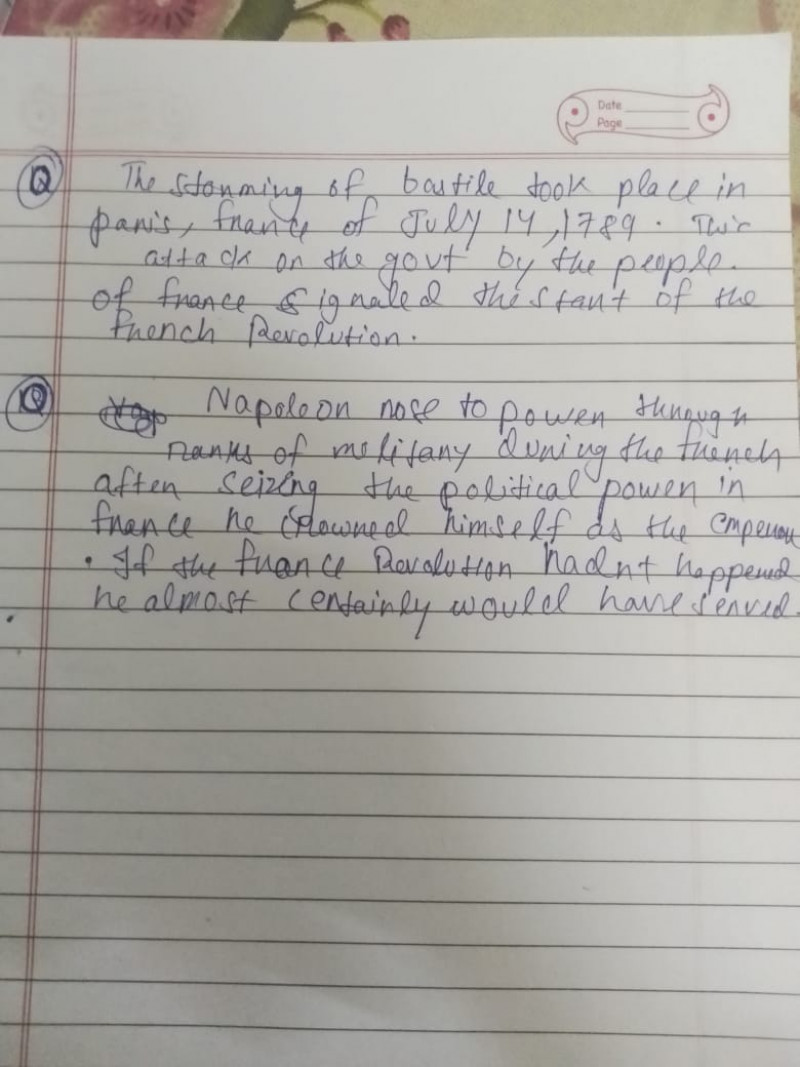 Date
Page
Q The Storming of bastile took place in
paris, france of July 14, 1789. This
attack on the govt by the people.
of france signaled the start of the
french Revolution.
Q Napoleon rose to power through
ranks of military during the french
after seizing the political power in
france he crowned himself as the emperor
. If the france Revolution hadn't happened
he almost certainly would have served.